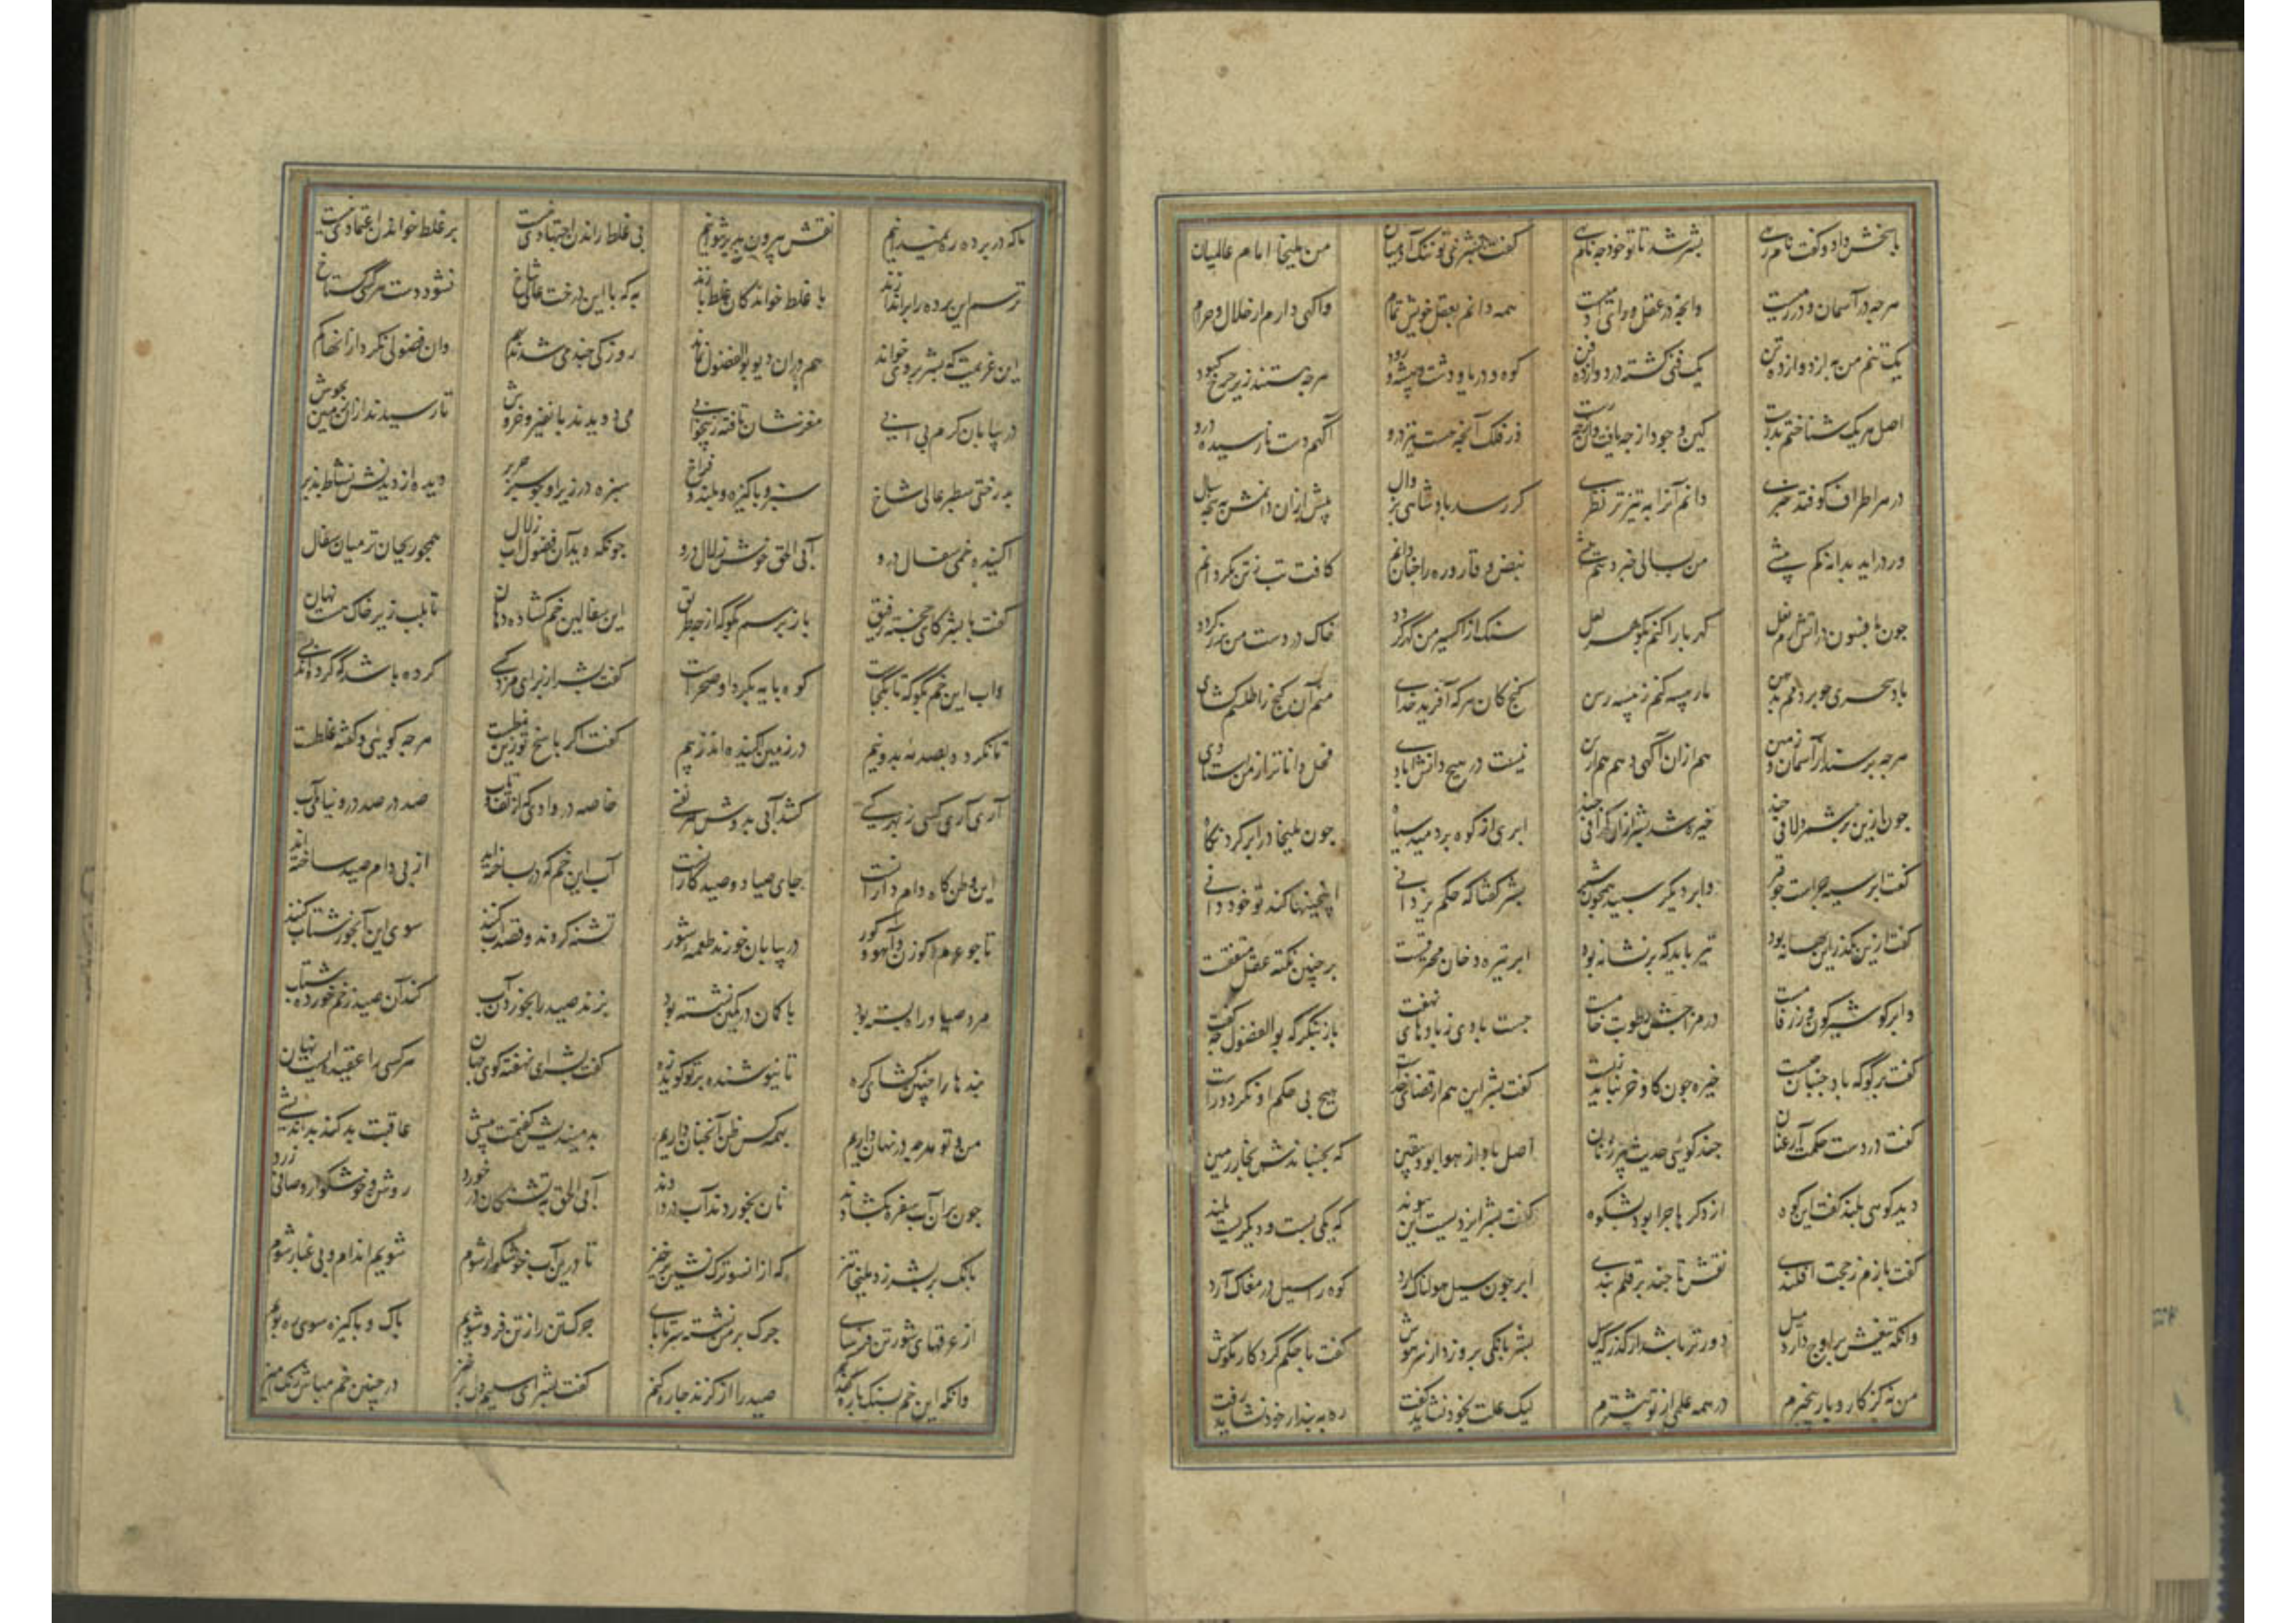 پاسخش داد و گفت نام رهی بشر شد تا تو خود چه نام نهی گفت بشری تو ننک آدمیان من ملیخا امام عالمیان
هرچه در آسمان و در زمیست وانچه در عقل و رای آدمیست همه دانم بعقل خویش تمام واکهی دارم از حلال و حرام
یک تنم من به از دوازده تن یک فنی کشته در دوازده فن کوه و دریا و دشت و بیشه و رود هرچه هستند زیر چرخ کبود
اصل هر یک شناختم بدرست کین وجود از چه یافت وان ز چه رست از فلک آنچه هست نیز درو آکهم دست نارسیده درو
در هر اطراف کوفتد خبری دانم آنرا به تیزتر نظری کر رسد پادشاهی بزوال پیش ازان دانمش به پنجه سال
ور دراید بدانه کم بیشی من بسالی خبر دهم پیشی نبض و قاروره را چنان دانم کافت تب ز تن بکردانم
چون بافسون در آتش آرم نعل کهربا را کنم بکوهر لعل سنک از اکسیر من کهر کردد خاک در دست من بزر کردد
باد سحری چو بر دمم بدهن مار پیسه کنم ز پیسه رسن کنج کان هر که آفرید خدای منم آن کنج را طلسم کشای
هرچه پرسند از آسمان و زمین هم ازان آکهی دهم هم ازین نیست در هیچ دانش آبادی فحل و داناتر از من استادی
چون ازین بر شمرد لافی چند خیره شد بشر ازان کزافی چند ابری از کوه بر دمید سیاه چون ملیخا در ابر کرد نکاه
کفت ابر سیه چراست چو قیر وابر دیکر سپید همچون شیر بشر کفتا که حکم یزدانی اینچنینها کند تو خود دانی
کفت ازین بکذر این بهانه بود تیر باید که بر نشانه بود ابر تیره دخان محترقست بر چنین نکته عقل متفقست
وابر کو شیرکون و زرق فامست در مزاجش رطوبت خامست جست بادی ز بادهای نهفت باز بنکر که بوالفضول چه کفت
کفت بر کو که باد جنبان چیست خیره چون کاو خر نباید زیست کفت بشر این هم از قضای خداست هیچ بی حکم او نکردد راست
کفت در دست حکمت آر عنان چند کوئی حدیث پیرزنان اصل باد از هوا بود بیقین که بجنباندش بخار زمین
دید کوهی بلند کفت این کوه از دکرها چرا بود بشکوه کفت بشر ایزدیست این پیوند که یکی پست و دیکریست بلند
کفت بازم ز حجت افکندی نقش تا چند بر قلم بندی ابر چون سیل هولناک آرد کوه را سیل در مغاک آرد
وانکه تیغش بر اوج دارد میل دورتر باشد از کذرکه سیل بشر بانکی برو زد از سر هوش کفت با حکم کردکار مکوش
من نه کز کار و بار بیخبرم در همه علمی از تو بیشترم لیک علت بخود نشاید کفت ره به پندار خود نشاید رفت
ما که در پرده ره نمیدانیم نقش بیرون پرده میخوانیم پی غلط راندن اجتهادی نیست بر غلط خواندن اعتمادی نیست
ترسم این پرده را براندازند با غلط خواندکان غلط بازند به که با این درخت عالی شاخ نشود دست هر کسی کستاخ
این عزیمت که بشر بر وی خواند هم دران دیو بوالفضول نماند روزکی چند می شدند بهم وان فضولی نکرد از آنها کم
در بیابان کرم بی آبی مغزشان تافته ز بیخوابی می دویدند با نفیر و خروش تا رسیدند ازان زمین بجوش
به رختی سطبر عالی شاخ سبز و پاکیزه و بلند و فراخ سبزه در زیر او چو سبز حریر دیده از دیدنش نشاط پذیر
اکنده خمی سفال درو آبی الحق خوش زلال درو چونکه دید آن فضول آب زلال همچو ریحان تر میان سفال
کفت با بشر کای خجسته رفیق باز پرسم بکو که از چه طریق این سفالین خم کشاده دهان تا بلب زیر خاک هست نهان
واب این خم بکو که تا بکجاست کوه پایه بکرد او صحراست کفت بشر از برای مزد کسی کرده باشد که کرده اند بسی
تا نکردد بصدمه بدونیم در زمین آکنده اند ز بیم کفت اکر پاسخ تو زین نمطست هرچه کوئی و کفته غلطست
آری آری کسی ز بهر کسی کشد آبی بدوش هر نفسی خاصه در وادئی که از تف و تاب صد در صد درو نیابی آب
این وطن کاه دام دارانست جای صیاد و صید کارانست آب این خم که در ساخته اند از پی دام صید ساخته اند
تا چو غرم و کوزن و آهو و کور در بیابان خورند طعمه شور تشنه کردند و قصد آب کنند سوی این آبخور شتاب کنند
مرد صیاد راه بسته بود با کمان در کمین نشسته بود بزند صید را بخوردن آب کند آن صید زخم خورده شتاب
بندها را چنین کشای کره تا نیوشنده بر تو کوید زه کفت بشر ای نهفته کوی جهان هر کسی را عقیده ایست نهان
من و تو هر چه در نهان داریم بهمه کس ظن آنچنان داریم بد میندیش کفتمت پیشی عاقبت بد کند بداندیشی
چون بران آب سفره بکشادند نان بخوردند آب در دادند آبی الحق به تشنکان در خورد روشن و خوشکوار و صافی زرد
بانک بر بشر زد ملیخا تیز که از انسو ترک نشین بر خیز تا درین آب خوشکوار شوم شویم اندام و بی غبار شوم
از عرقهای شور تن فرسای چرک بر من نشسته سر تا پای چرک تن را ز تن فرو شویم پاک و پاکیزه سوی ره پویم
وانکه این خم بسنک پاره کنم صید را از کزند چاره کنم کفت بشر ای سلیم دل بر خیز در چنین خم مباش رنک آمیز